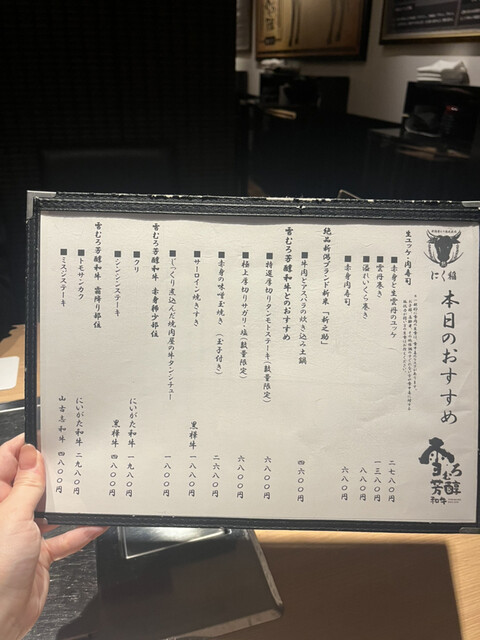 本日のおすすめ
雪むろ
芳醇
和牛
にく
生ユッケ・肉寿司
■赤身と生雲丹のユッケ 二七八〇円
■雲丹巻き 一三八〇円
■溢れいくら巻き 八八〇円
■赤身肉寿司 六八〇円
絶品新潟ブランド新米 「新之助」
■牛肉とアスパラの炊き込み土鍋 四六〇〇円
雪むろ芳醇和牛とのおすすめ
■特選厚切りタンモトステーキ(数量限定) 六八〇〇円
■極上厚切りサガリ・塩(数量限定) 六八〇〇円
■赤身の味噌玉焼き(玉子付き) 二六八〇円
■サーロイン焼きすき 黒樺牛 一八八〇円
■じっくり煮込んだ焼肉屋の牛タンシチュー 一八〇〇円
雪むろ芳醇和牛 赤身稀少部位
■クリ にいがた和牛 一九八〇円
■シンシンステーキ 黒樺牛 四八〇〇円
雪むろ芳醇和牛 霜降り部位
■トモサンカク にいがた和牛 二九八〇円
■ミスジステーキ 山古志和牛 四八〇〇円